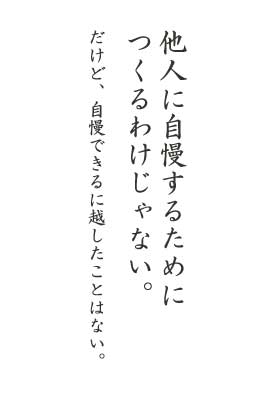 他人に自慢するために
つくるわけじゃない。
だけど、自慢できるに越したことはない。